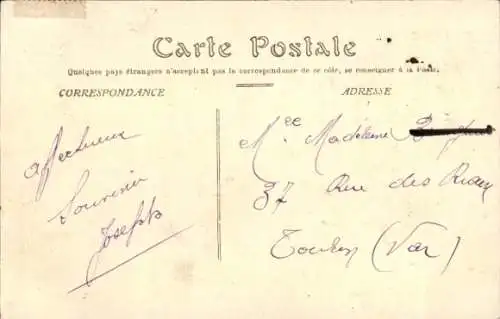 Carte Postale
Quelques pays étrangers n'acceptent pas la correspondance de ce côté, se renseigner à la Poste.
CORRESPONDANCE
ADRESSE
affectueux
Souvenir
Joseph
Mee Madeleine
37 Rue des Riaux
Toulon (Var)